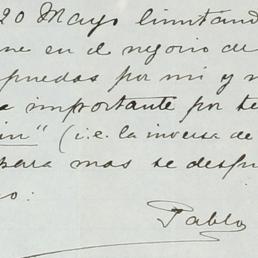 20 Mayo limitand
ne en el negocio de
puedas por mi y n
importante por te
in" (i.e. la inversa de
para mas se despi
o:
Pablo